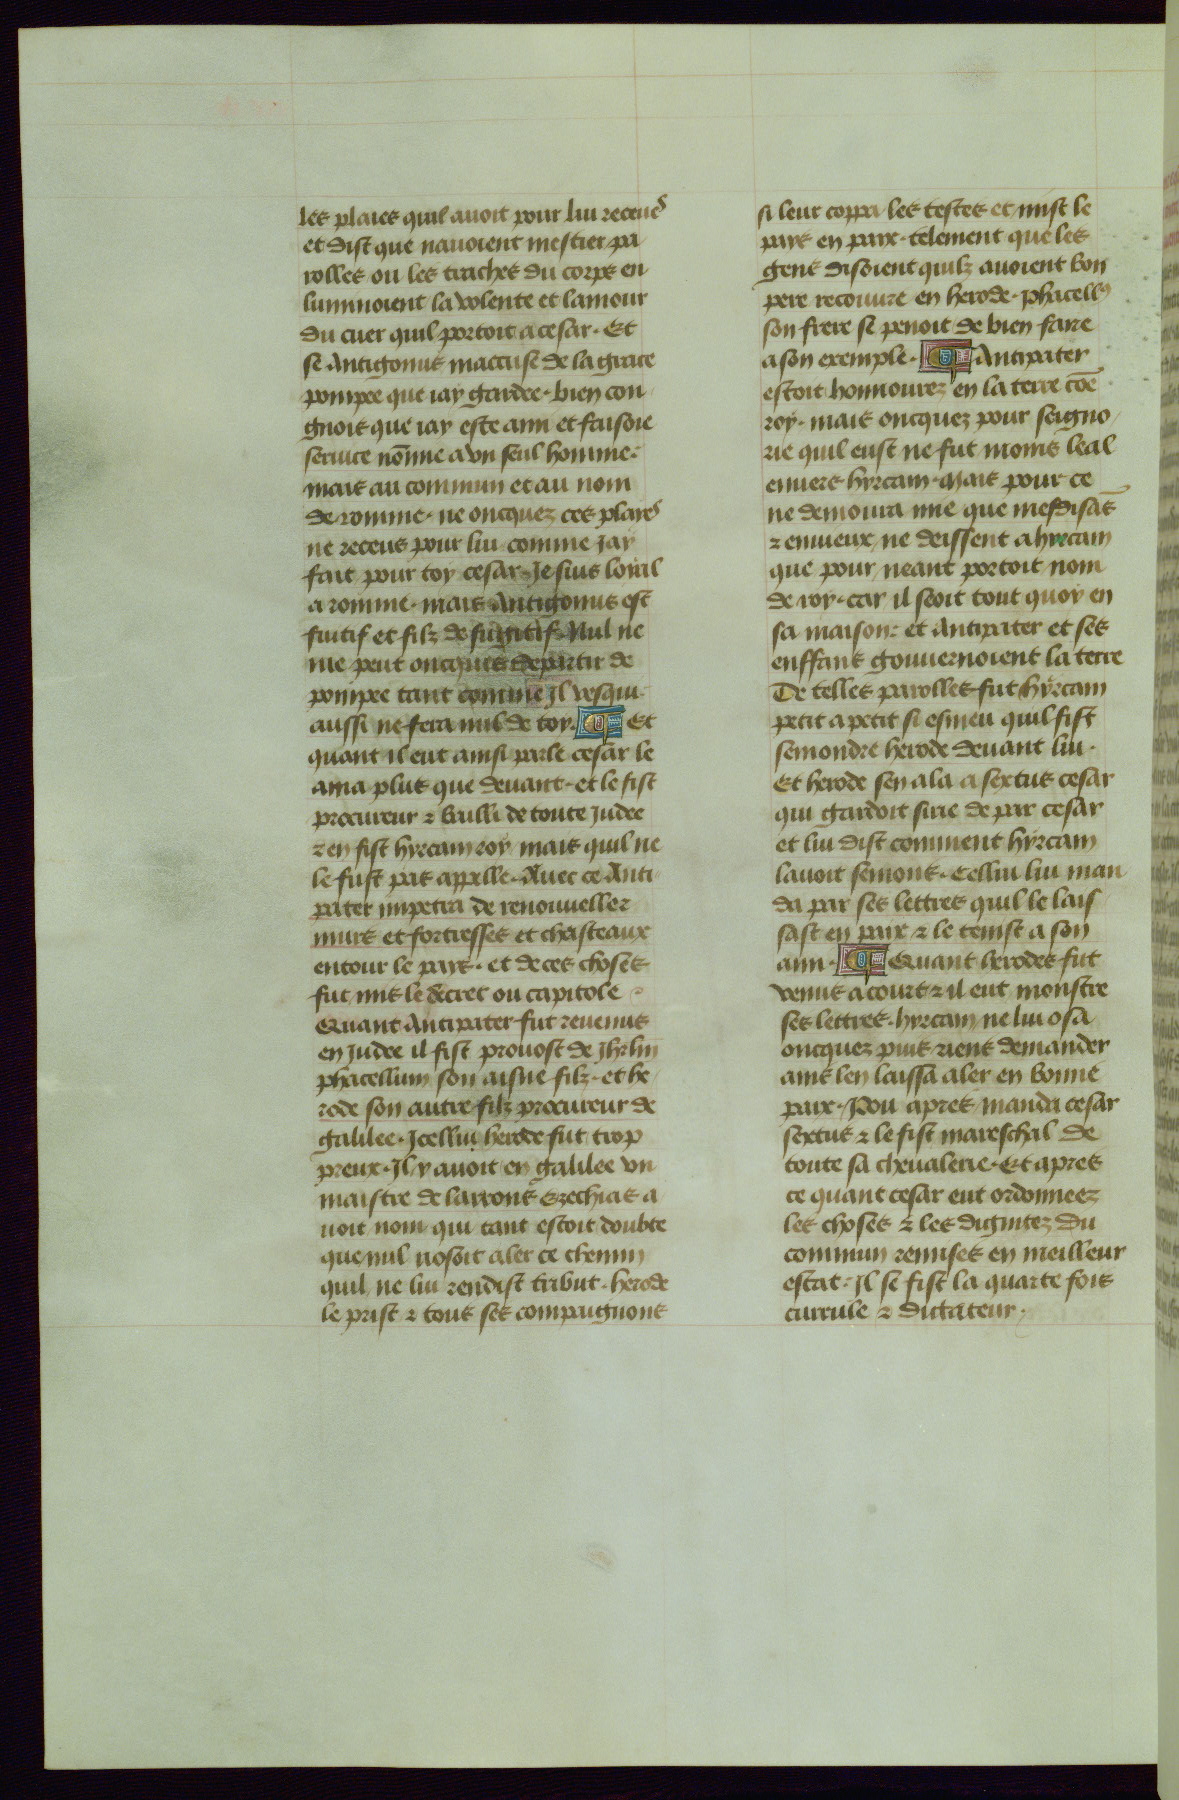 les plaies quil auoit pour lui receues
et dist que nauoient mestier pa
rolles ou les traches du corps en
luminoient la volente et lamour
du cuer quil portoit a cesar. Et
se Antigonus maccuse de la grace
pompee que iay gardee. bien con
gnois que iay este ami et faisoie
seruice nōme a vn seul homme.
mais au commun et au nom
de romme. ne oncquez ces plaies
ne receus pour lui comme Jay
fait pour toy cesar. Je suis loyal
a romme. mais Antigonus est
fuitif et filz de fugitif. Nul ne
me peut oncques departir de
pompee tant comme Il vesqui.
aussi ne fera nul de toy. Et
quant il eut ainsi parle cesar le
ama plus que deuant. et le fist
procureur ⁊ bailli de toute Judee
⁊ en fist hyrcam roy mais quil ne
le fust pas appelle. Auec ce Anti
pater impetra de renouueller
murs et fortresses et chasteaux
entour le pays. et de ces choses
fut mis le decret ou capitole
Quant Antipater fut reuenus
en Judee il fist prouost de Jhrlm̄
phacellum son aisne filz. et he
rode son autre filz procureur de
galilee. Icellui herode fut trop
preux. Il y auoit en galilee vn
maistre de larrons Ezechias a
uoit nom qui tant estoit doubte
que nul nosoit aler ce chemin
quil ne lui rendist tribut. herode
le prist ⁊ tous ses compaignons
si leur coppa les testes et mist le
pays en paix. telement que les
gens disoient quilz auoient bon
pere recouure en herode. phacellus
son frere se penoit de bien faire
a son exemple. Antipater
estoit honnourez en la terre cōe
roy. mais oncquez pour seigno
rie quil eust ne fut moins leal
enuers hyrcam. Mais pour ce
ne demoura mie que mesdisās
⁊ enuieux ne deissent a hyrcam
que pour neant portoit nom
de roy. car il seoit tout quoy en
sa maison. et Antipater et ses
enffans gouuernoient la terre
De telles parolles fut hyrcam
petit a petit si esmeu quil fist
semondre herode deuant lui.
Et herode sen ala a sextus cesar
qui gardoit sirie de par cesar
et lui dist comment hyrcam
lauoit semons. Cellui lui man
da par ses lettres quil le lais
sast en paix ⁊ le tenist a son
ami. Quant herodes fut
venus a court ⁊ il eut monstre
ses lettres. hyrcam ne lui osa
oncquez puis riens demander
ains len laissa aler en bonne
paix. Pou apres manda cesar
sextus ⁊ le fist mareschal de
toute sa cheualerie. Et apres
ce quant cesar eut ordonneez
les choses ⁊ les dignitez du
commun remises en meilleur
estat. Il se fist la quarte fois
curcule ⁊ dictateur.